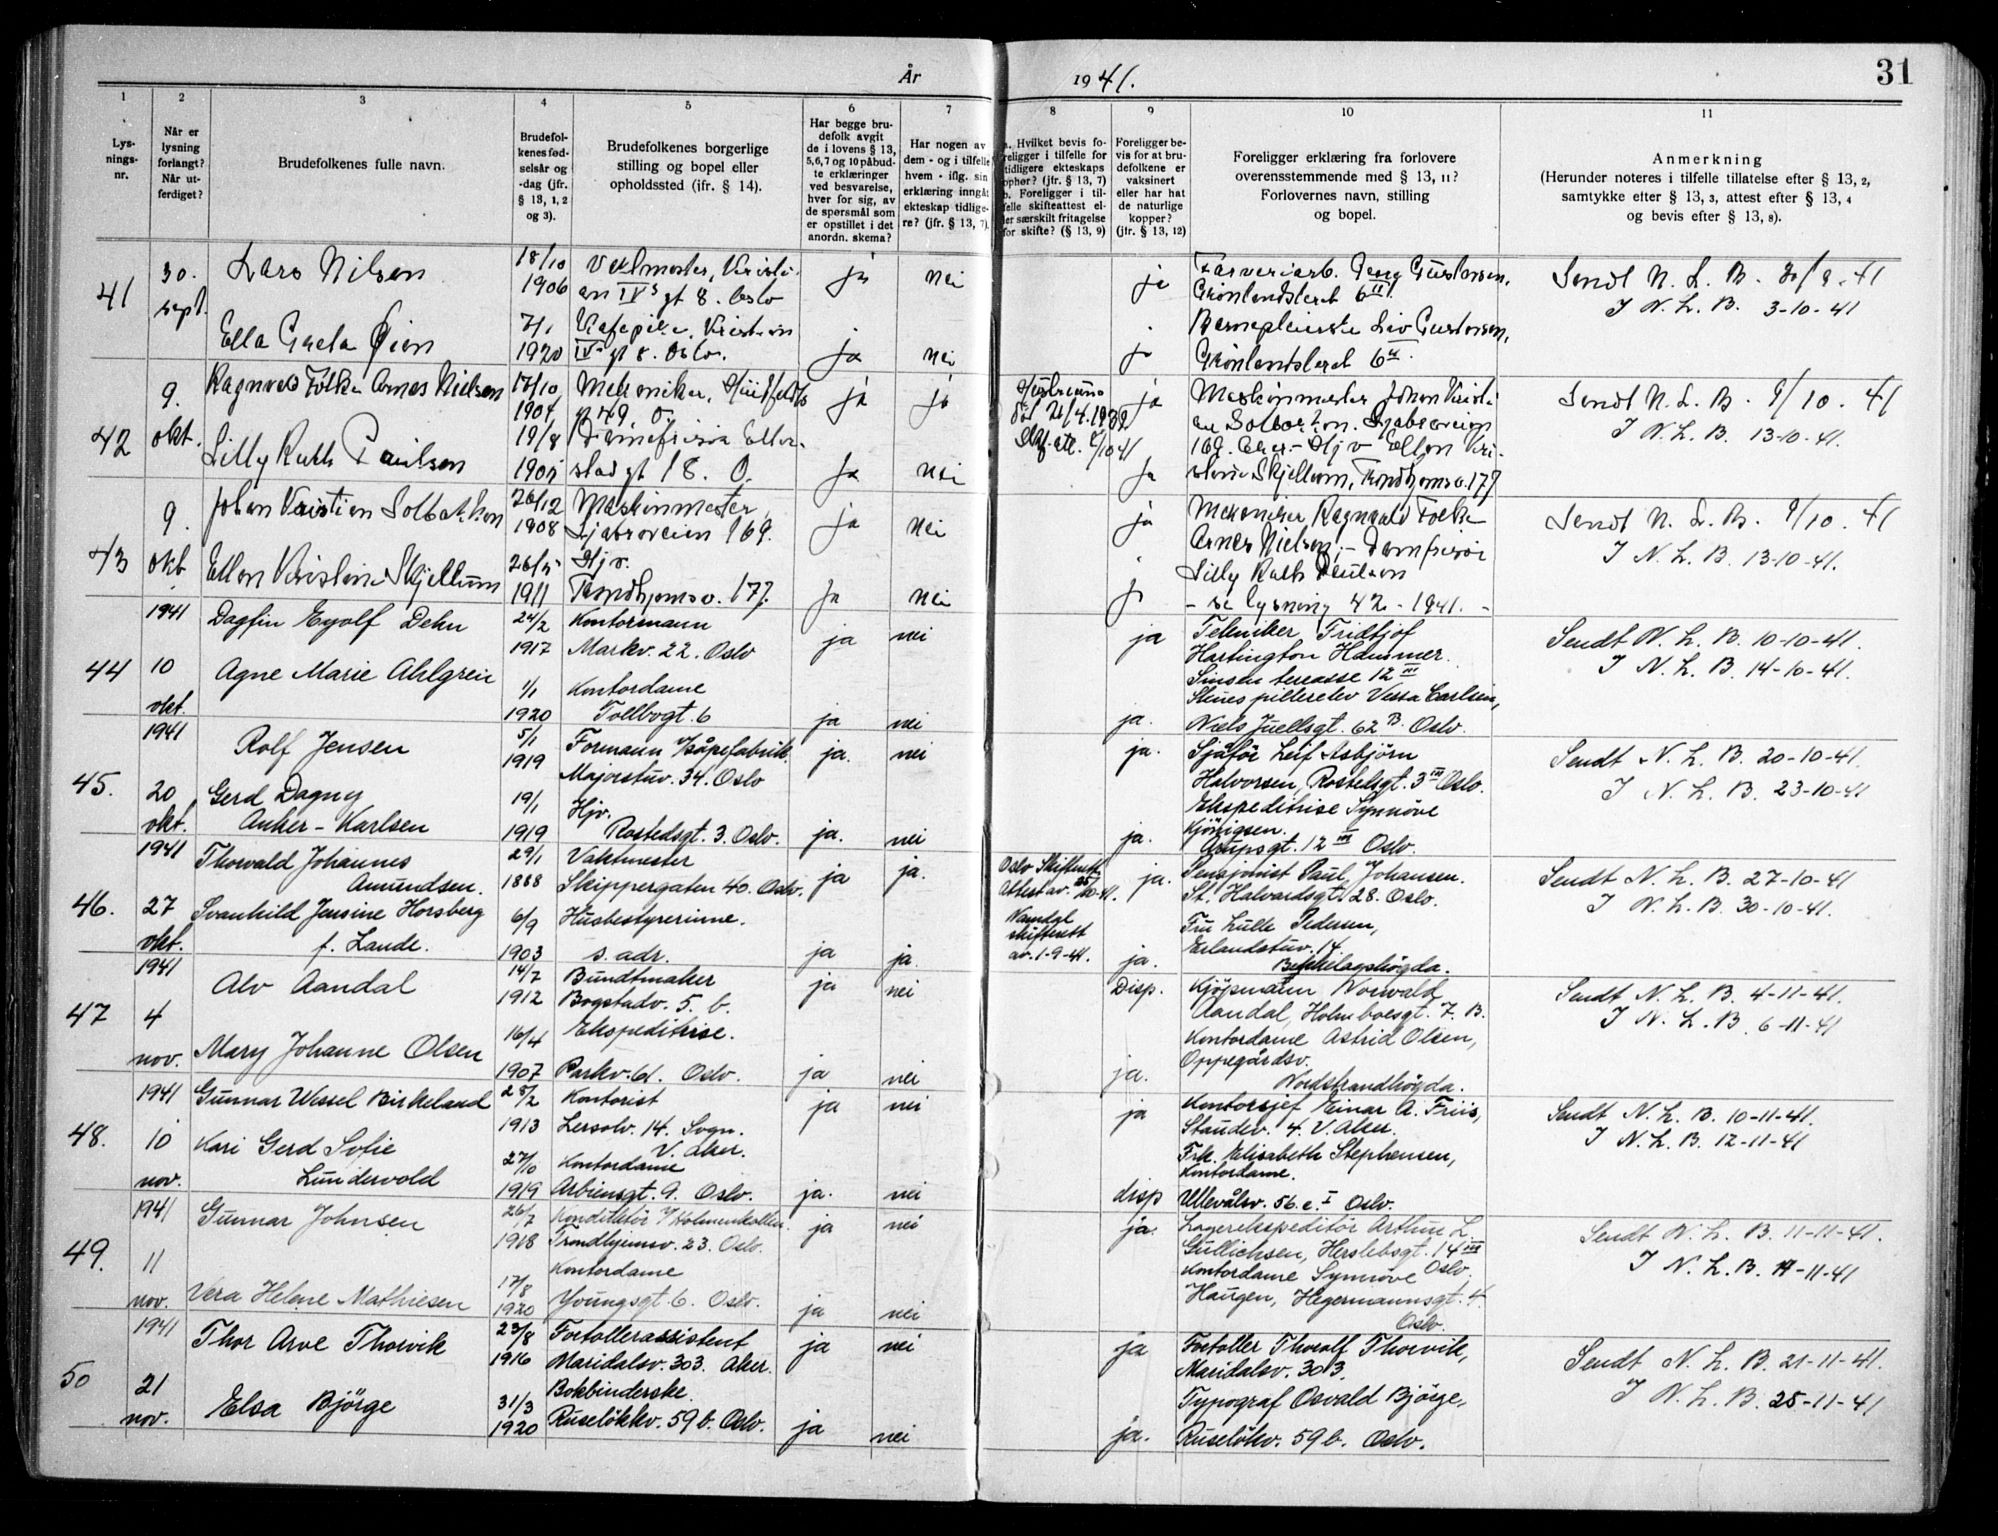 År
1941.
31
1
2
3
4
5
6
7
8
9
10
11
Lys-
nings-
nr.
Når er
lysning
forlangt?
Når ut-
ferdiget?
Brudefolkenes fulle navn.
Brudefol-
kenes fød-
selsår og
-dag (jfr.
§ 13, 1, 2
og 3).
Brudefolkenes borgerlige
stilling og bopel eller
opholdssted (jfr. § 14).
Har begge bru-
defolk avgit
de i lovens § 13,
5, 6, 7 og 10 påbud-
te erklæringer
ved besvarelse,
hver for sig, av
de spørsmål som
er opstillet i det
anordn. skema?
Har nogen av
dem - og i tilfelle
hvem - iflg. sin
erklæring inngåt
ekteskap tidlige-
re? (jfr. § 13, 7).
a. Hvilket bevis fo-
religger i tilfelle for
tidligere ekteskaps
ophør? (jfr. § 13, 7)
b. Foreligger i til-
felle skifteattest el-
ler særskilt fritagelse
for skifte? (§ 13, 9)
Foreligger be-
vis for at bru-
defolkene er
vaksinert
eller har hat
de naturlige
kopper?
(jfr. § 13, 12)
Foreligger erklæring fra forlovere
overensstemmende med § 13, 11?
Forlovernes navn, stilling
og bopel.
Anmerkning
(Herunder noteres i tilfelle tillatelse efter § 13, 2,
samtykke efter § 13, 3, attest efter § 13, 4
og bevis efter § 13, 8).
41
30.
sept.
Lars Nilsen
18/10
1906
Vaktmester, Kristi-
an IVs gt 8. Oslo
ja
nei
ja
Farveriarb. Georg Gustavsen,
Grønlandsleret 6 II.
Sendt N. L. B. 30/9-41
I N. L. B. 3-10-41
Ella Greta Øien
7/1
1920
Kafepike, Kristian
IVs gt 8. Oslo.
ja
nei
ja
Barnepleierske Liv Gustavsen,
Grønlandsleret 6 II.
42
9.
okt.
Ragnvald Folke Arnes Nielsen
17/10
1904
Mekaniker, Huitfeldts
gt 49. O.
ja
ja
Hustruens
død 21/4.1932
Skifteatt. 6/10 41
ja
Maskinmester Johan Kristi-
an Solbakken. Ljabruveien
169. Aker - Hjv Ellen Kri-
stine Skjellum, Trondhjemsv. 177
Sendt N. L. B. 9/10. 41
I N. L. B. 13-10-41.
Lilly Ruth Paulsen
19/8
1905
Damefrisør Eiler-
stad gt 18. O.
ja
nei
ja
43
9.
okt.
Johan Kristian Solbakken
26/12
1908
Maskinmester
Ljabruveien 169.
ja
nei
ja
Mekaniker Ragnvald Folke
Arnes Nielsen - Damfrisør
Lilly Ruth Paulsen
- se lysning 42 - 1941. -
Sendt N. L. B. 9/10. 41
I N. L. B. 13-10-41.
Ellen Kristine Skjellum
26/5
1911
Hjv.
Trondhjemsv. 177.
ja
nei
ja
44
1941
10
okt.
Dagfin Eyolf Dehn
24/2
1917
Kontormann
Markv. 22. Oslo
ja
nei
ja
Tekniker Fridtjof
Hartington Hammer.
Sinsen terrasse 12 III
Skuespillerelev Vessa Carlsen,
Niels Juellsgt. 62 B. Oslo.
Sendt N. L. B. 10-10-41.
I N. L. B. 14-10-41.
Agne Marie Ahlgren
1/1
1920
Kontordame
Tollbogt. 6
ja
nei
ja.
45.
1941
20
okt.
Rolf Jensen
5/1
1919
Formann v/såpefabrik.
Majorstuv. 34. Oslo
ja.
nei
ja.
Sjåför Leif Asbjörn
Halvorsen, Rostedsgt. 3 III Oslo.
Ekspeditrise Synnöve
Kjönigsen.
Arupsgt. 12 III Oslo.
Sendt N. L. B. 20-10-41.
I N. L. B. 23-10-41
Gerd Dagny
Anker-Karlsen
19/1
1919
Hjv.
Rostedsgt. 3. Oslo.
ja.
nei
ja.
46.
1941
27
okt.
Thorvald Johannes
Amundsen.
29/1
1888
Vaktmester
Skippergaten 40. Oslo.
ja
ja.
Oslo Skifterett
Attest av 25/10-41.
ja.
Pensjonist Paul Johansen.
St. Halvardsgt. 28. Oslo.
Fru Lulle Pedersen,
Erlandstuv. 14.
Bekkelagshögda.
Sendt N. L. B. 27-10-41
I N. L. B. 30-10-41.
Svanhild Jensine Horsberg
f. Lande.
6/9
1903
Husbestyrerinne.
s. adr.
ja
ja.
Namdal
skifterett
av. 1-9-41.
ja.
47
1941
4
nov.
Alv Aandal
14/7
1912
Bundtmaker
Bogstadv. 5. b.
ja
nei
Disp.
Kjöpmann Norvald
Aandal, Holmboesgt. 7. B.
Kontordame Astrid Olsen,
Oppegårdsv.
Nordstrandhögda.
Sendt N. L. B. 4-11-41.
I N. L. B. 6-11-41
Mary Johanne Olsen
16/4
1907
Ekspeditrise.
Parkv. 61. Oslo.
ja
nei
ja.
48.
1941
10
nov.
Gunnar Wessel Birkeland
28/2
1913
Kontorist
Lersolv. 14. Sogn.
V. Aker.
ja
nei
ja
Kontorsjef Einar A. Friis,
Staudev. 4. V. Aker.
Frk. Elisabeth Stephensen,
Kontordame.
Ullevålsv. 56. c. I Oslo.
Sendt N. L. B. 10-11-41.
I N. L. B. 12-11-41
Kari Gerd Sofie
Lundevold
27/10
1919
Kontordame
Arbiensgt. 9. Oslo.
ja.
nei
disp
49.
1941
11
nov.
Gunnar Johnsen
26/7
1918
Konditor v/Holmenkollen.
Trondhjemsv. 23. Oslo.
ja
nei
ja.
Lagerekspeditör Arthur L.
Gullichsen, Herslebsgt. 14 III
Oslo.
Kontordame Synnöve
Haugen, Hegermannsgt. 4.
Oslo.
Sendt N. L. B. 11-11-41.
I N. L. B. 14-11-41
Vera Helene Mathiesen
17/8
1920
Kontordame
Youngsgt. 6. Oslo.
ja
nei
50
1941
21
nov.
Thor Arve Thorvik
23/8
1916
Fortollerassistent
Maridalsv. 303. Aker.
ja
nei
ja
Fortoller Thorolf Thorvik,
Maridalsv. 303.
Typograf Osvald Björge,
Ruselökkv. 59 b. Oslo.
Sendt N. L. B. 21-11-41.
I N. L. B. 25-11-41
Elsa Björge
31/3
1920
Bokbinderske.
Ruselökkv. 59 b. Oslo.
ja
nei
ja.